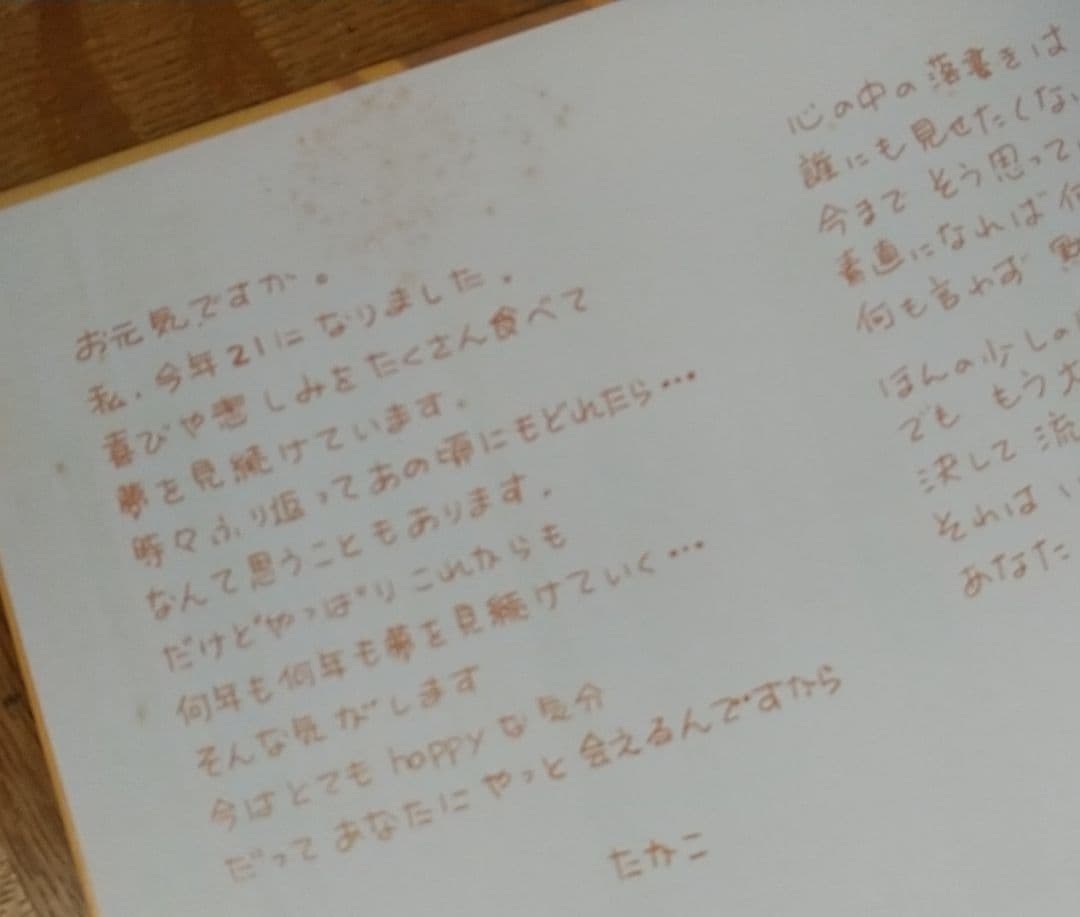 お元気ですか。
私、今年21になりました。
喜びや悲しみをたくさん食べて
夢を見続けています。
時々ふり返ってあの頃にもどれたら…
なんて思うこともあります。
だけどやっぱりこれからも
何年も何年も夢を見続けていく…
そんな気がします
今はとてもhappyな気分
だってあなたにやっと会えるんですから
たかこ
心の中の落書きは
誰にも見せたくな
今までそう思って
素直になれば何
何も言わず
ほんの少しの
でももう大
決して流
それはい
あなた